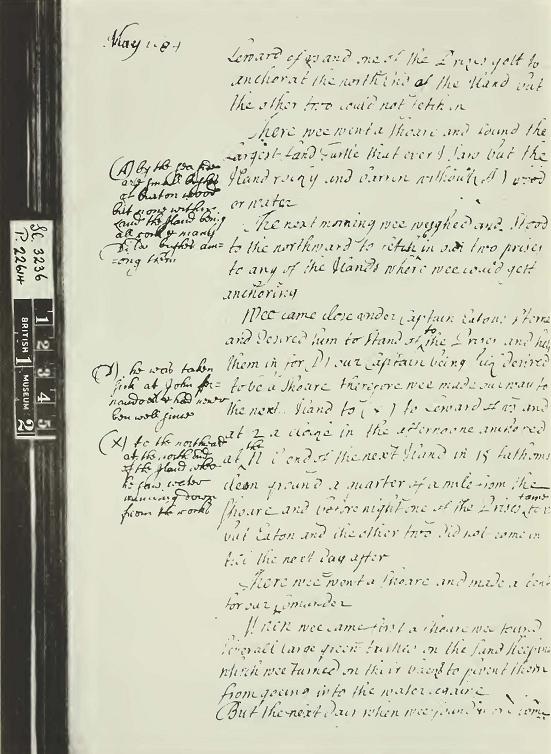 May 1684
Leward of us and one of the Prizes gott to
anchor at the north End of the Iland but
the other two could not fetch in
There wee went a shoare and found the
Largest Land Turtle that ever I saw but the
Iland rocky and barren without (A) wood
or water
The next morning wee weighed and stood
to the northward to fetch in our two prises
to any of the Ilands where wee could gett
anchoring
Wee came close under Captain Eatons Sterne
and desired him to stand of to the Prizes and help
them in for (D) our Captain being sick desired
to be a shoare therefore wee made our way to
the next Iland to (X) to Leward of us and
at 2 a clocke in the afternoone anchored
at the N End of the next Iland in 15 fathoms
clean ground a quarter of a mile from the
shoare and before night one of the Prises came to
but Eaton and the other two did not come in
till the next day after
There wee went a shoare and made a tent
for our Comander
When wee came first a shoare wee found
severall large green turtles on the sand
which wee turned on their backs to pvent them
from goeing into the water againe
But the next Daies when wee found
(A) by the sea side
are small bushes
of Buaton wood
but none within
Land the Iland being
all rock & many
Dildo bushes am-
ong them
(D) he was taken
sick at John fer-
nandoes & had never
ben well since
(X) to the northeast
at the north end
of the Iland
he saw water
running down
from the rocks
SC. 3236
P. 226H
BRITISH MUSEUM
1 2 3 4 5
1 2